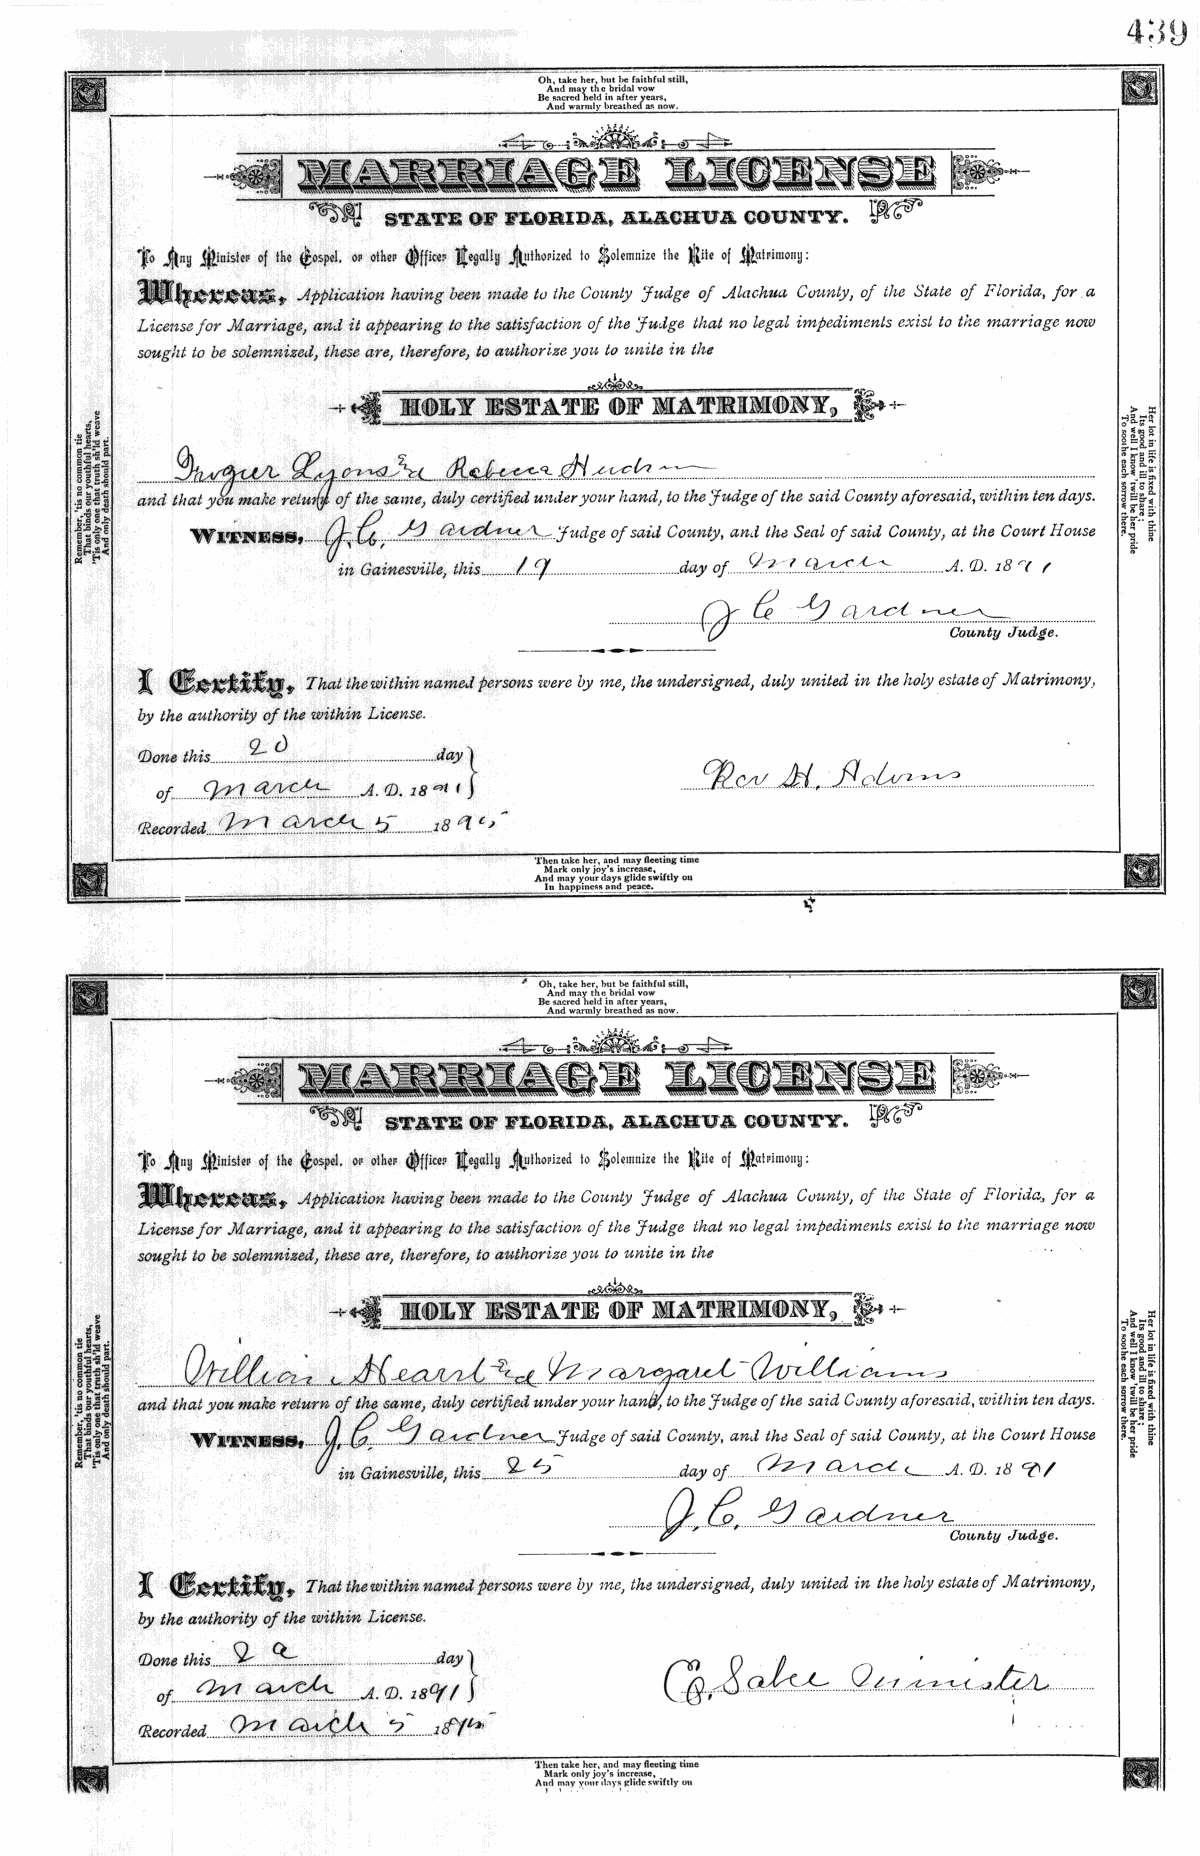 439
Oh, take her, but be faithful still,
And may the bridal vow
Be sacred held in after years,
And warmly breathed as now.
MARRIAGE LICENSE
STATE OF FLORIDA, ALACHUA COUNTY.
To Any Minister of the Gospel, or other Officer Legally Authorized to Solemnize the Rite of Matrimony:
Whereas, Application having been made to the County Judge of Alachua County, of the State of Florida, for a
License for Marriage, and it appearing to the satisfaction of the Judge that no legal impediments exist to the marriage now
sought to be solemnized, these are, therefore, to authorize you to unite in the
HOLY ESTATE OF MATRIMONY,
Lyons & Rebecca Hudson
and that you make return of the same, duly certified under your hand, to the Judge of the said County aforesaid, within ten days.
WITNESS, J. C. Gardner Judge of said County, and the Seal of said County, at the Court House
in Gainesville, this 19 day of March A. D. 1891
J C Gardner
County Judge.
I Certify, That the within named persons were by me, the undersigned, duly united in the holy estate of Matrimony,
by the authority of the within License.
Done this 20 day
of March A. D. 1891
Rev H. Adams
Recorded March 5 1895
Remember, 'tis no common tie
That binds our youthful hearts,
'Tis only one that truth sh'ld weave
And only death should part.
Her lot in life is fixed with thine
Its good and ill to share;
And well I know 'twill be her pride
To soothe each sorrow there.
Then take her, and may fleeting time
Mark only joy's increase,
And may your days glide swiftly on
In happiness and peace.
Oh, take her, but be faithful still,
And may the bridal vow
Be sacred held in after years,
And warmly breathed as now.
MARRIAGE LICENSE
STATE OF FLORIDA, ALACHUA COUNTY.
To Any Minister of the Gospel, or other Officer Legally Authorized to Solemnize the Rite of Matrimony:
Whereas, Application having been made to the County Judge of Alachua County, of the State of Florida, for a
License for Marriage, and it appearing to the satisfaction of the Judge that no legal impediments exist to the marriage now
sought to be solemnized, these are, therefore, to authorize you to unite in the
HOLY ESTATE OF MATRIMONY,
William Hearst & Margaret Williams
and that you make return of the same, duly certified under your hand, to the Judge of the said County aforesaid, within ten days.
WITNESS, J. C. Gardner Judge of said County, and the Seal of said County, at the Court House
in Gainesville, this 25 day of March A. D. 1891
J. C. Gardner
County Judge.
I Certify, That the within named persons were by me, the undersigned, duly united in the holy estate of Matrimony,
by the authority of the within License.
Done this 29 day
of March A. D. 1891
Minister
Recorded March 5 1895
Remember, 'tis no common tie
That binds our youthful hearts,
'Tis only one that truth sh'ld weave
And only death should part.
Her lot in life is fixed with thine
Its good and ill to share;
And well I know 'twill be her pride
To soothe each sorrow there.
Then take her, and may fleeting time
Mark only joy's increase,
And may your days glide swiftly on